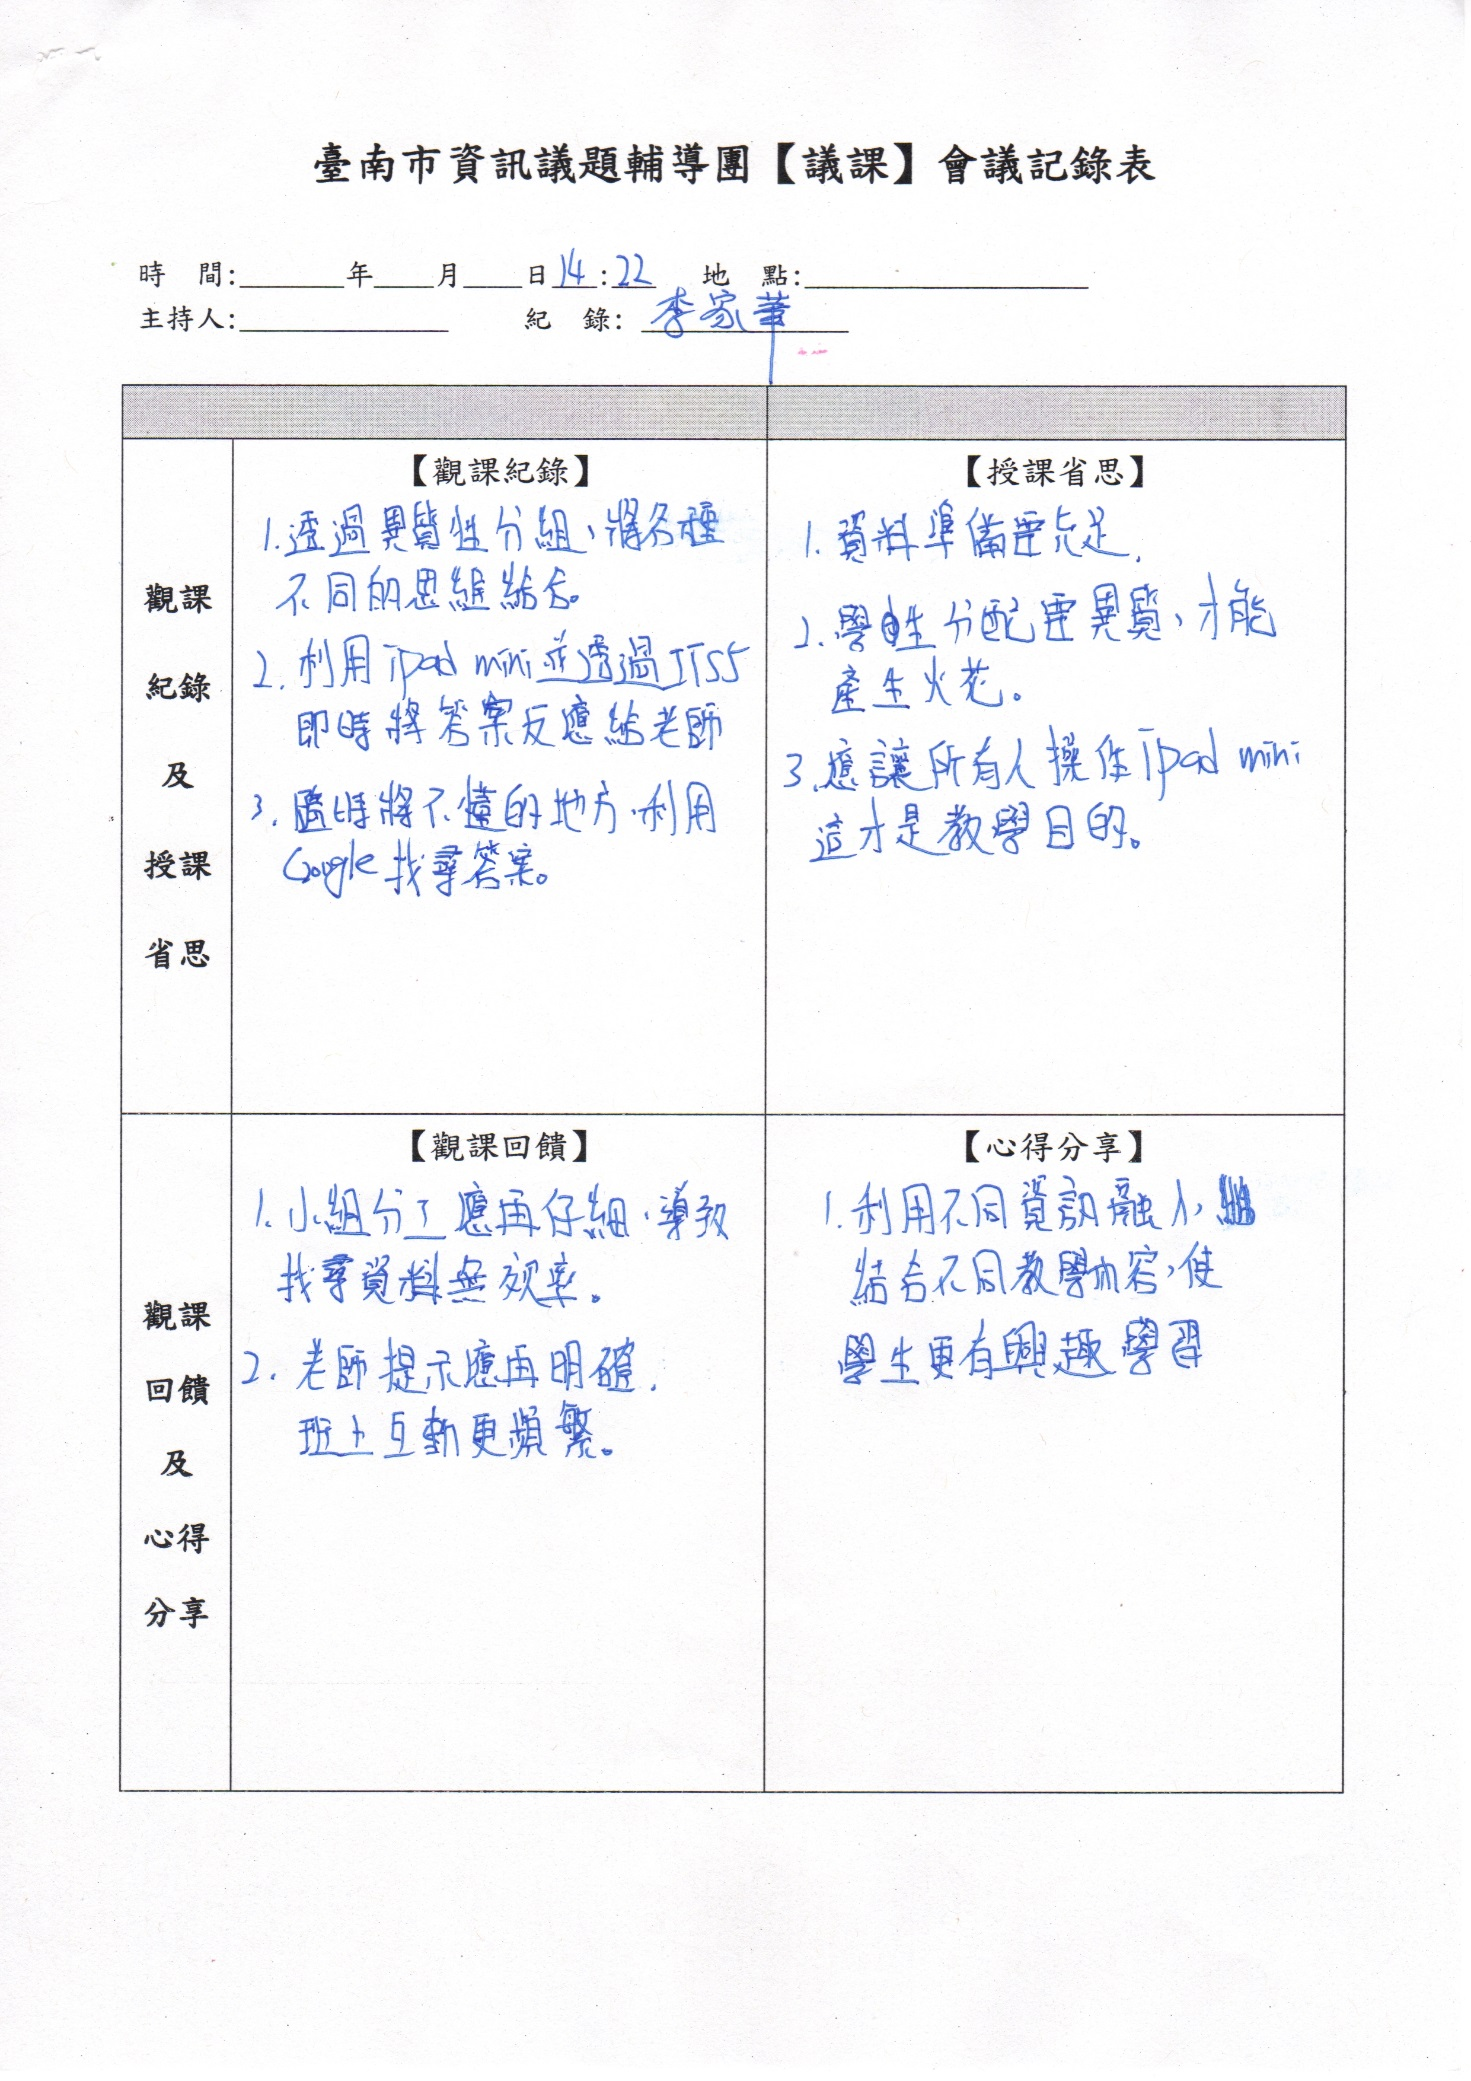 臺南市資訊議題輔導團【議課】會議記錄表
時 間:______年____月____日14:22 地 點:__________________
主持人:______________ 紀 錄:李家華
觀課
紀錄
及
授課
省思
【觀課紀錄】
1.透過異質性分組、將各種
不同的思維結合。
2.利用ipad mini並透過ITS5
即時將答案反應給老師
3.隨時將不懂的地方、利用
Google找尋答案。
【授課省思】
1.資料準備要充足.
2.學生分配要異質、才能
產生火花。
3.應讓所有人操作ipad mini
這才是教學目的。
觀課
回饋
及
心得
分享
【觀課回饋】
1.小組分工應再仔細、導致
找尋資料無效率。
2.老師提示應再明確.
班上互動更頻繁。
【心得分享】
1.利用不同資訊融入,
結合不同教學內容,使
學生更有興趣學習